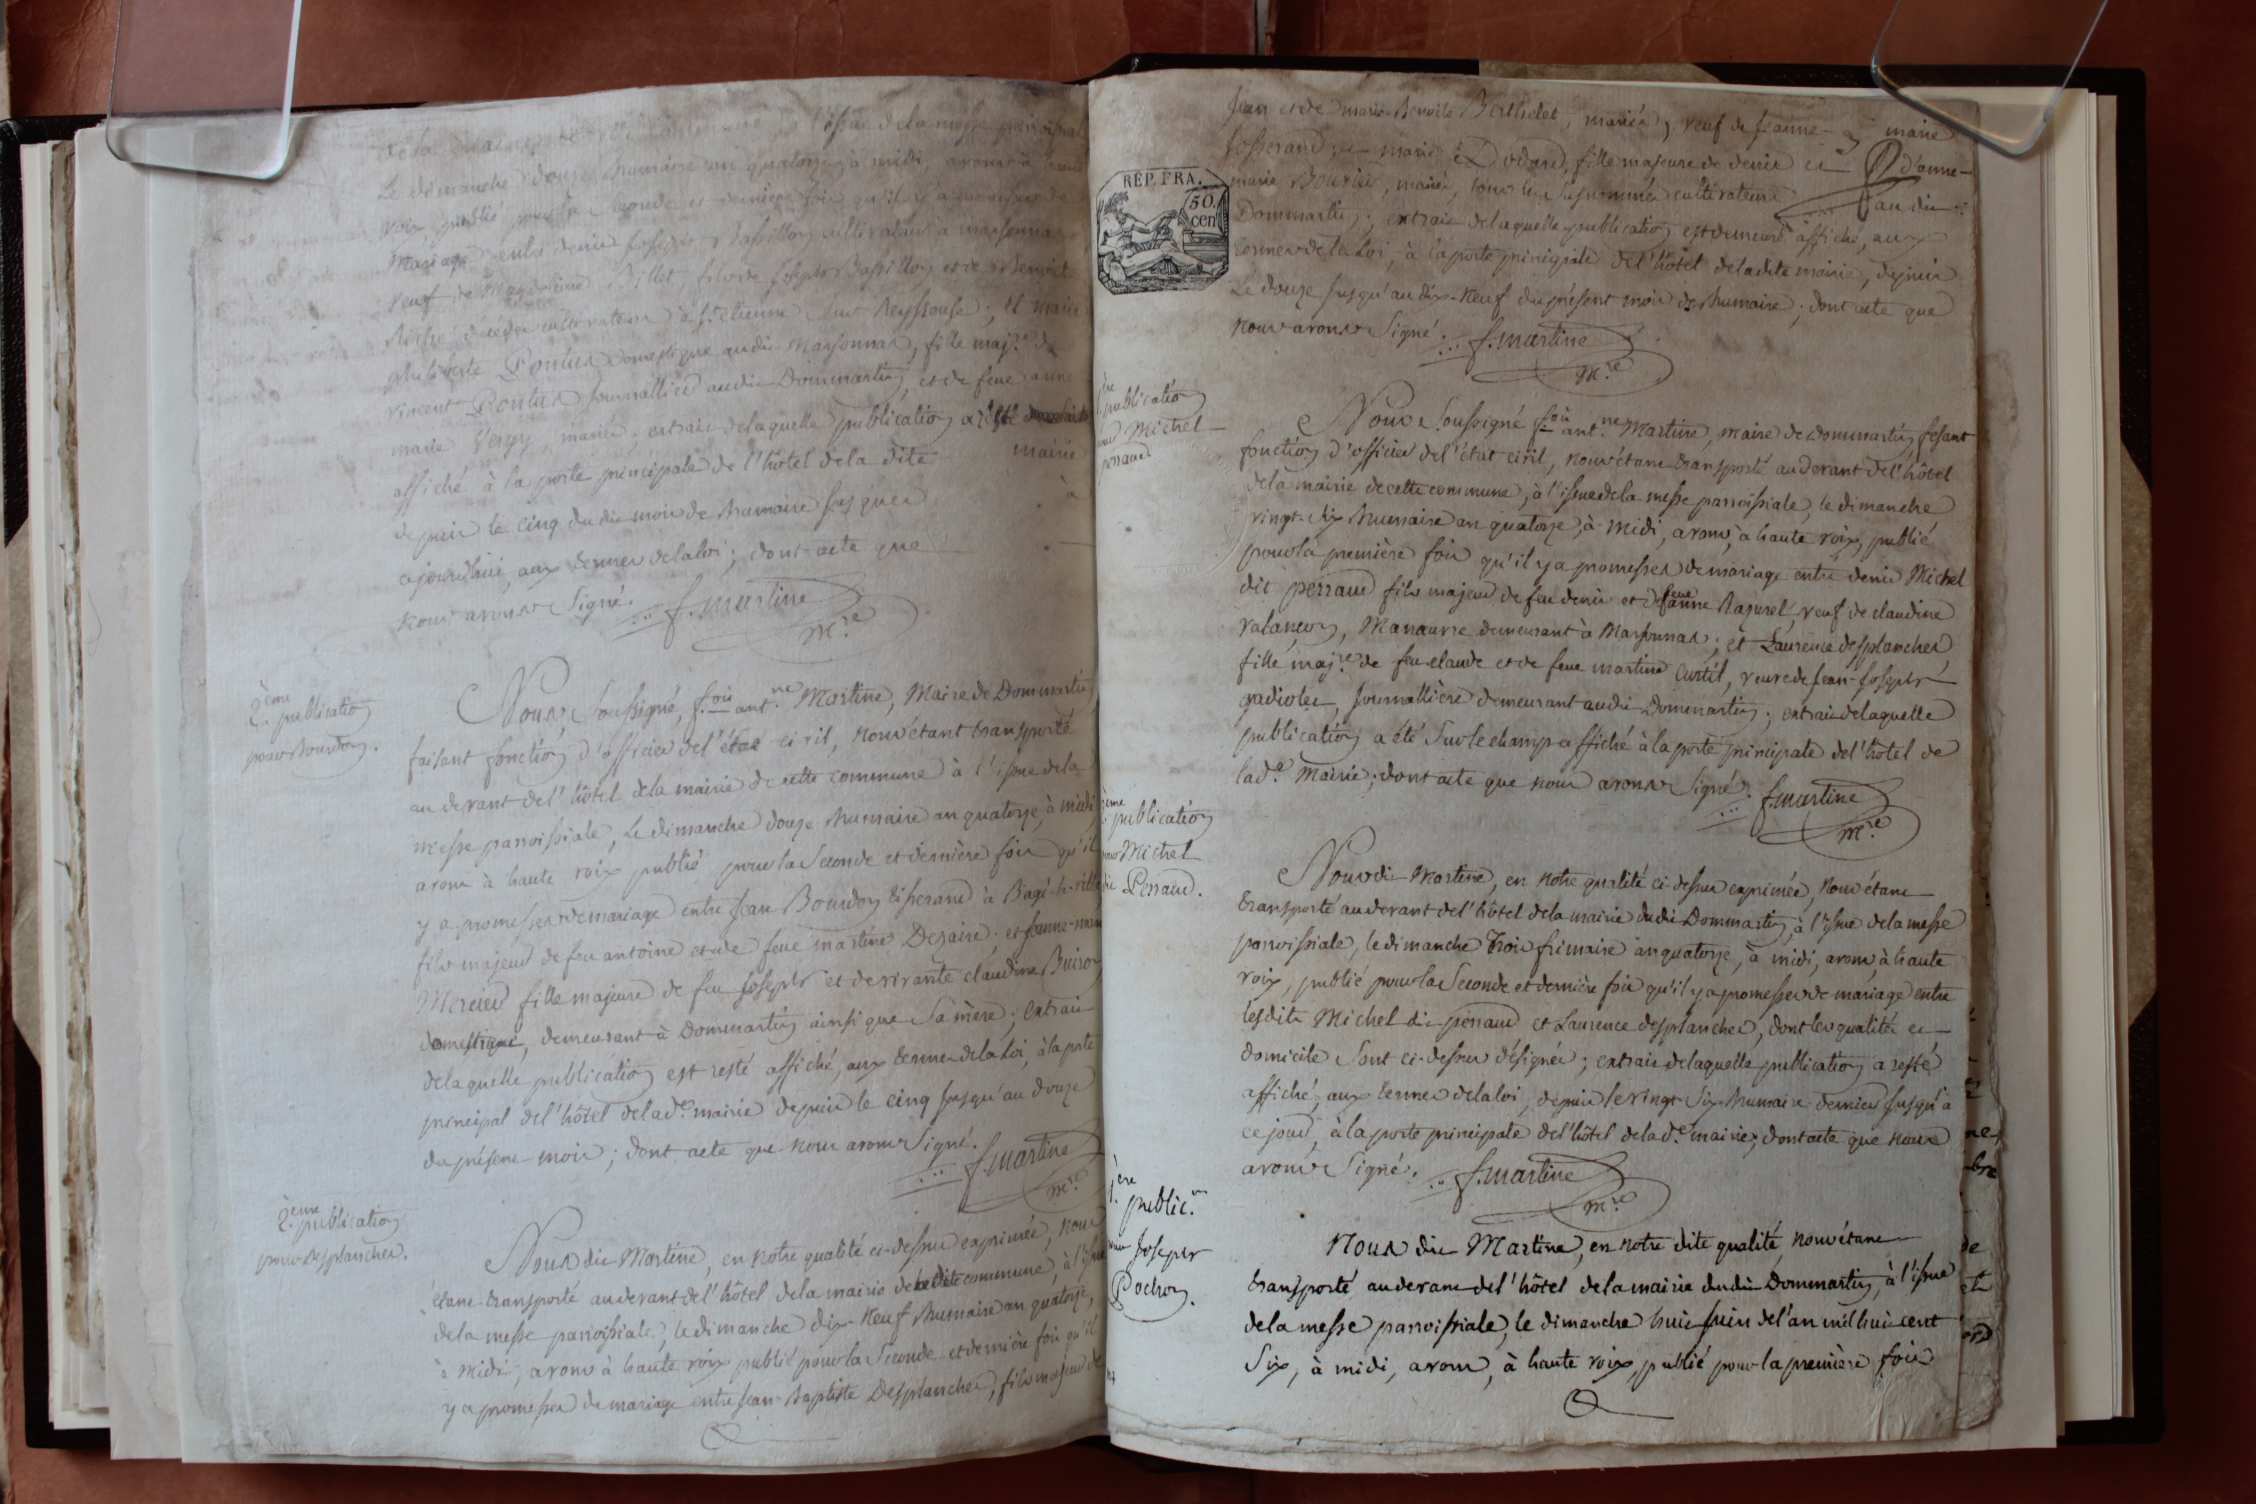 de la de cette commune à l'issue de la messe paroissiale
Le dimanche douze brumaire an quatorze, à midi, avons à haute
voix publié pour la seconde et dernière fois qu'il y a promesses de
mariage entre denis joseph Bassillon cultivateur à marsonnas
veuf de Magdeleine Billet, fils de joseph Bassillon et de Benoite
décédés cultivateurs à St. etienne sur Reyssouse; et marie
philiberte Pontus domestique audit Marsonnas, fille maj.re de
vincent Pontus journallier audit Dommartin, et de feue anne
marie Vergy, mariés; extrait de laquelle publication a resté
affiché à la porte principale de l'hôtel de la dite mairie
depuis le cinq du dit mois de brumaire jusques à
ajourdhui, aux termes de la loi; dont acte que
nous avons signé. f. martine
m.re
2.eme publication
pour Bourdon.
Nous soussigné, f.ois ant.ne Martine, Maire de Dommartin
faisant fonction d'officier de l'état civil, nous étant transporté
au devant de l'hôtel de la mairie de cette commune à l'issue de la
messe paroissiale, le dimanche douze brumaire an quatorze, à midi
avons à haute voix publié pour la seconde et dernière fois qu'il
y a promesses de mariage entre jean Bourdon tisserand à Bagé-la-ville
fils majeur de feu antoine et de feue martine Dezaire; et jeanne-marie
Mercier fille majeure de feu joseph et de vivante claudine Buiron
domestique, demeurant à Dommartin ainsi que sa mère; extrait
de laquelle publication est resté affiché, aux termes de la loi, à la porte
principal de l'hôtel de lad.e mairie depuis le cinq jusqu'au douze
du présent mois; dont acte que nous avons signé. f. martine
m.re
2.eme publication
pour desplanches.
Nous dit Martine, en notre qualité ci-dessus exprimée, nous
étant transporté au devant de l'hôtel de la mairie de ladite commune, à l'issue
de la messe paroissiale, le dimanche dix-neuf brumaire an quatorze,
à midi, avons à haute voix publié pour la seconde et dernière fois qu'il
y a promesses de mariage entre jean-Baptiste Desplanches, fils majeur de
jean et de marie-Benoite Berthelet, mariés, veuf de jeanne-
marie
josserand; et marie Dodard, fille majeure de denis et
d'anne-
marie Bourier, mariés, tous les susnommés cultivateurs
audit
REP. FRA.
50
cen
Dommartin; extrait de laquelle publication est demeuré affiché, aux
termes de la loi, à la porte principale de l'hôtel de la dite mairie, depuis
le douze jusqu'au dix-neuf du présent mois de brumaire; dont acte que
nous avons signé. f. martine
m.re
1.ere publication
pour Michel
perraud
Nous soussigné f.ois ant.ne Martine, maire de dommartin fesant
fonction d'officier de l'état civil, nous étant transporté au devant de l'hôtel
de la mairie de cette commune, à l'issue de la messe paroissiale, le dimanche
vingt-six brumaire an quatorze, à midi, avons, à haute voix, publié
pour la première fois qu'il y a promesses de mariage entre denis Michel
dit perraud fils majeur de feu denis et de feue anne Razurel, veuf de claudine
valançon, Manœuvre demeurant à Marsonnas; et Laurence desplanches
fille maj.re de feu claude et de feue martine Curtil, veuve de jean-joseph
gadiolet, journallière demeurant audit Dommartin; extrait de laquelle
publication a été sur le champ affiché à la porte principale de l'hôtel de
lad.e Mairie; dont acte que nous avons signé. f. martine
m.re
2.eme publication
pour Michel
dit Perraud.
Nous dit Martine, en notre qualité ci-dessus exprimée, nous étant
transporté au devant de l'hôtel de la mairie dudit Dommartin, à l'issue de la messe
paroissiale, le dimanche trois frimaire an quatorze, à midi, avons, à haute
voix, publié pour la seconde et dernière fois qu'il y a promesses de mariage entre
lesdits Michel dit perraud et Laurence desplanches, dont les qualités et
domicile sont ci-dessus désignés; extrait de laquelle publication a resté
affiché, aux termes de la loi, depuis le vingt-six brumaire dernier jusqu'à
ce jour, à la porte principale de l'hôtel de lad.e mairie; dont acte que nous
avons signé. f. martine
m.re
1.ere public.on
pour Joseph
Pochon.
Nous dit Martine, en notre dite qualité, nous étant
transporté au devant de l'hôtel de la mairie dudit Dommartin, à l'issue
de la messe paroissiale, le dimanche huit juin de l'an mil huit cent
six, à midi, avons, à haute voix, publié pour la première fois